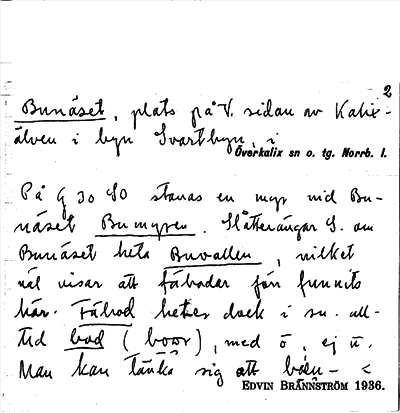 2
Bunäset, plats på V. sidan av Kalix-
älven i byn Svartbyn, i
Överkalix sn o. tg. Norrb. l.
På G 30 SO stavas en myr vid Bu-
näset Bumyren. Slåtterängar S. om
Bunäset heta Buvallen, vilket
väl visar att fäbodar förr funnits
här. Fäbod heter dock i sn. all-
tid bod (boor), med ō, ej ū.
Man kan tänka sig att
EDVIN BRÄNNSTRÖM 1936.